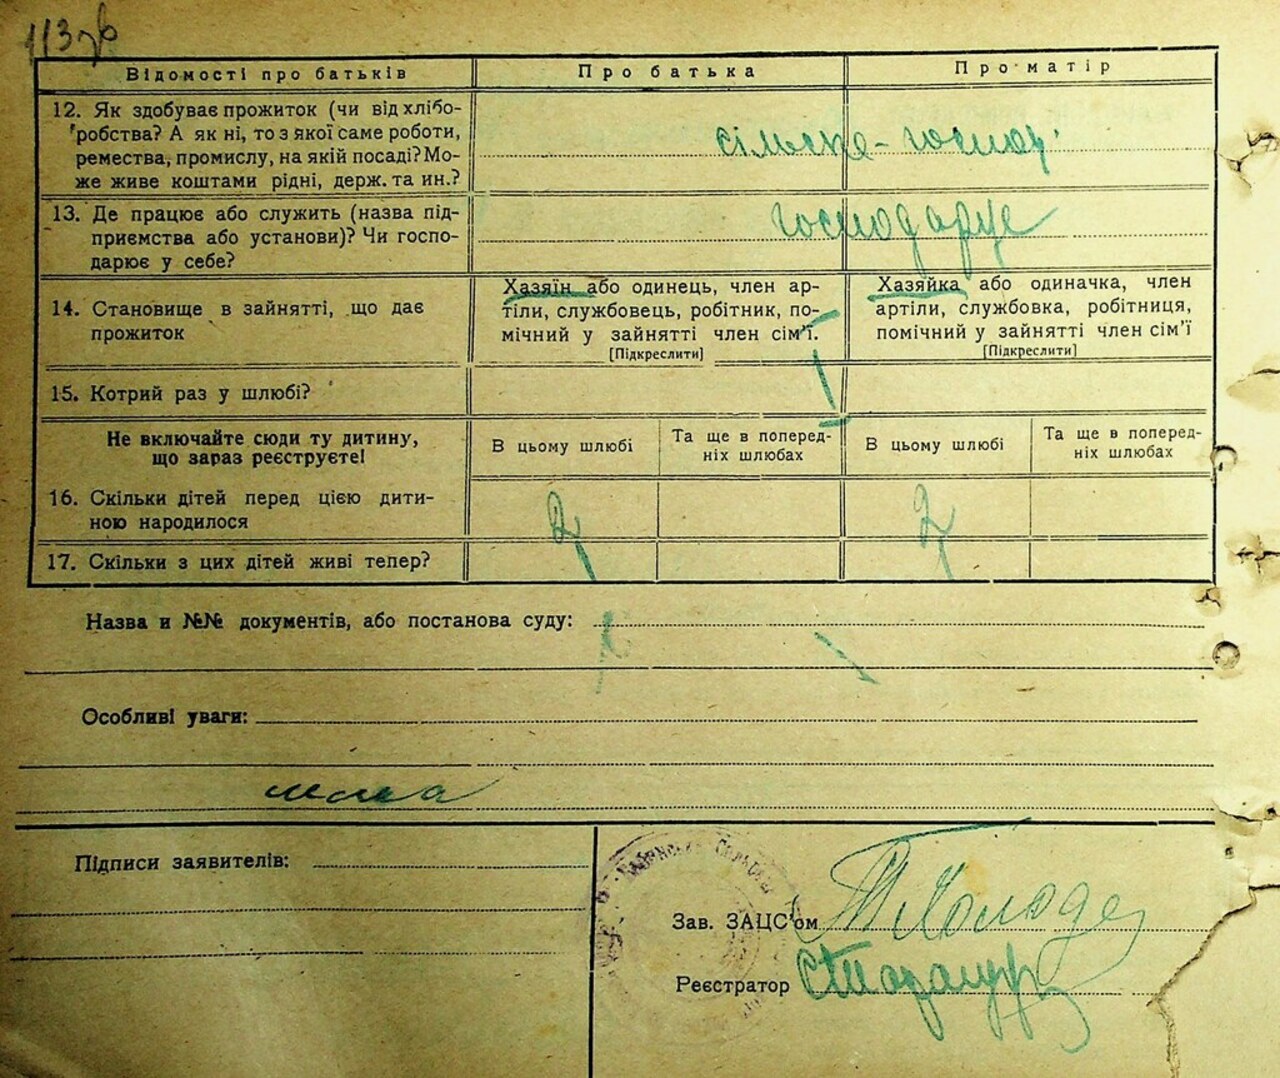 113 зв
Відомості про батьків
Про батька
Про матір
12. Як здобуває прожиток (чи від хлібо-
робства? А як ні, то з якої саме роботи,
ремества, промислу, на якій посаді? Мо-
же живе коштами рідні, держ. та ин.?
сільське-господ.
13. Де працює або служить (назва під-
приємства або установи)? Чи госпо-
дарює у себе?
господарує
14. Становище в зайнятті, що дає
прожиток
Хазяїн або одинець, член ар-
тіли, службовець, робітник, по-
мічний у зайнятті член сім'ї.
[Підкреслити]
Хазяйка або одиначка, член
артіли, службовка, робітниця,
помічний у зайнятті член сім'ї
[Підкреслити]
15. Котрий раз у шлюбі?
Не включайте сюди ту дитину,
що зараз реєструєте!
В цьому шлюбі
Та ще в поперед-
ніх шлюбах
В цьому шлюбі
Та ще в поперед-
ніх шлюбах
16. Скільки дітей перед цією дити-
ною народилося
2
2
17. Скільки з цих дітей живі тепер?
Назва и №№ документів, або постанова суду:
Особливі уваги:
Підписи заявителів:
Зав. ЗАЦС'ом
Реєстратор